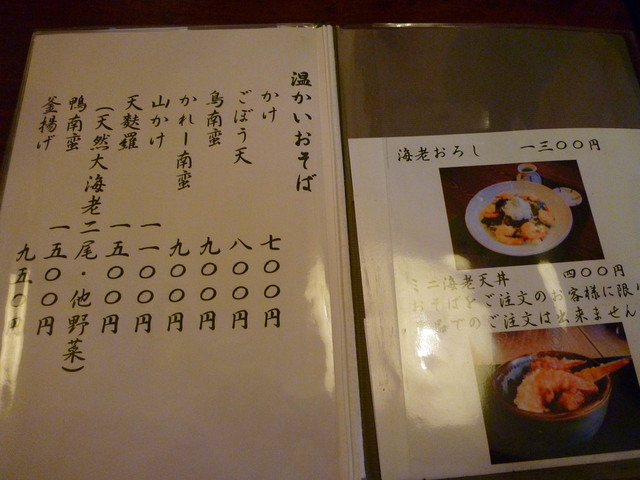 温かいおそば
かけ 七〇〇円
ごぼう天 八〇〇円
鳥南蛮 九〇〇円
かれー南蛮 九〇〇円
山かけ 一一〇〇円
天麩羅 一五〇〇円
(天然大海老二尾・他野菜)
鴨南蛮 一五〇〇円
釜揚げ 九五〇円
海老おろし 一三〇〇円
ミニ海老天丼 四〇〇円
おそばをご注文のお客様に限
でのご注文は出来ません